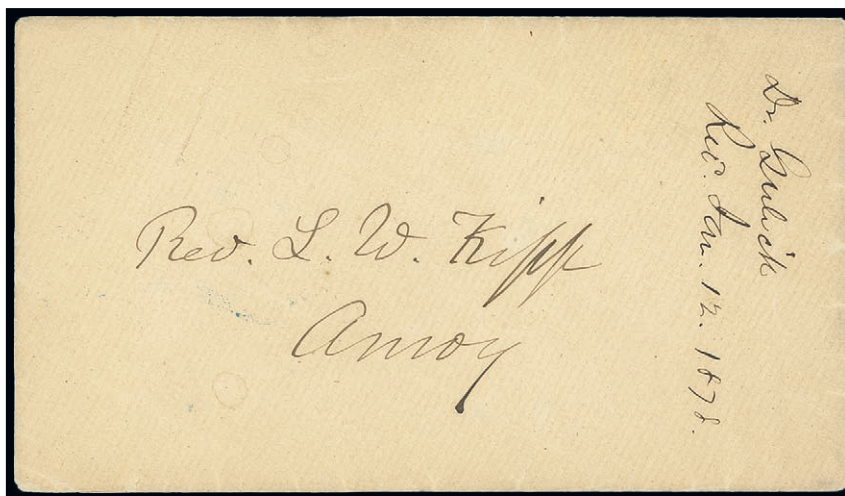 Rev. L. W. Kipp
Amoy
Dr. Gulick
Rec'd. Jan. 12. 1878.